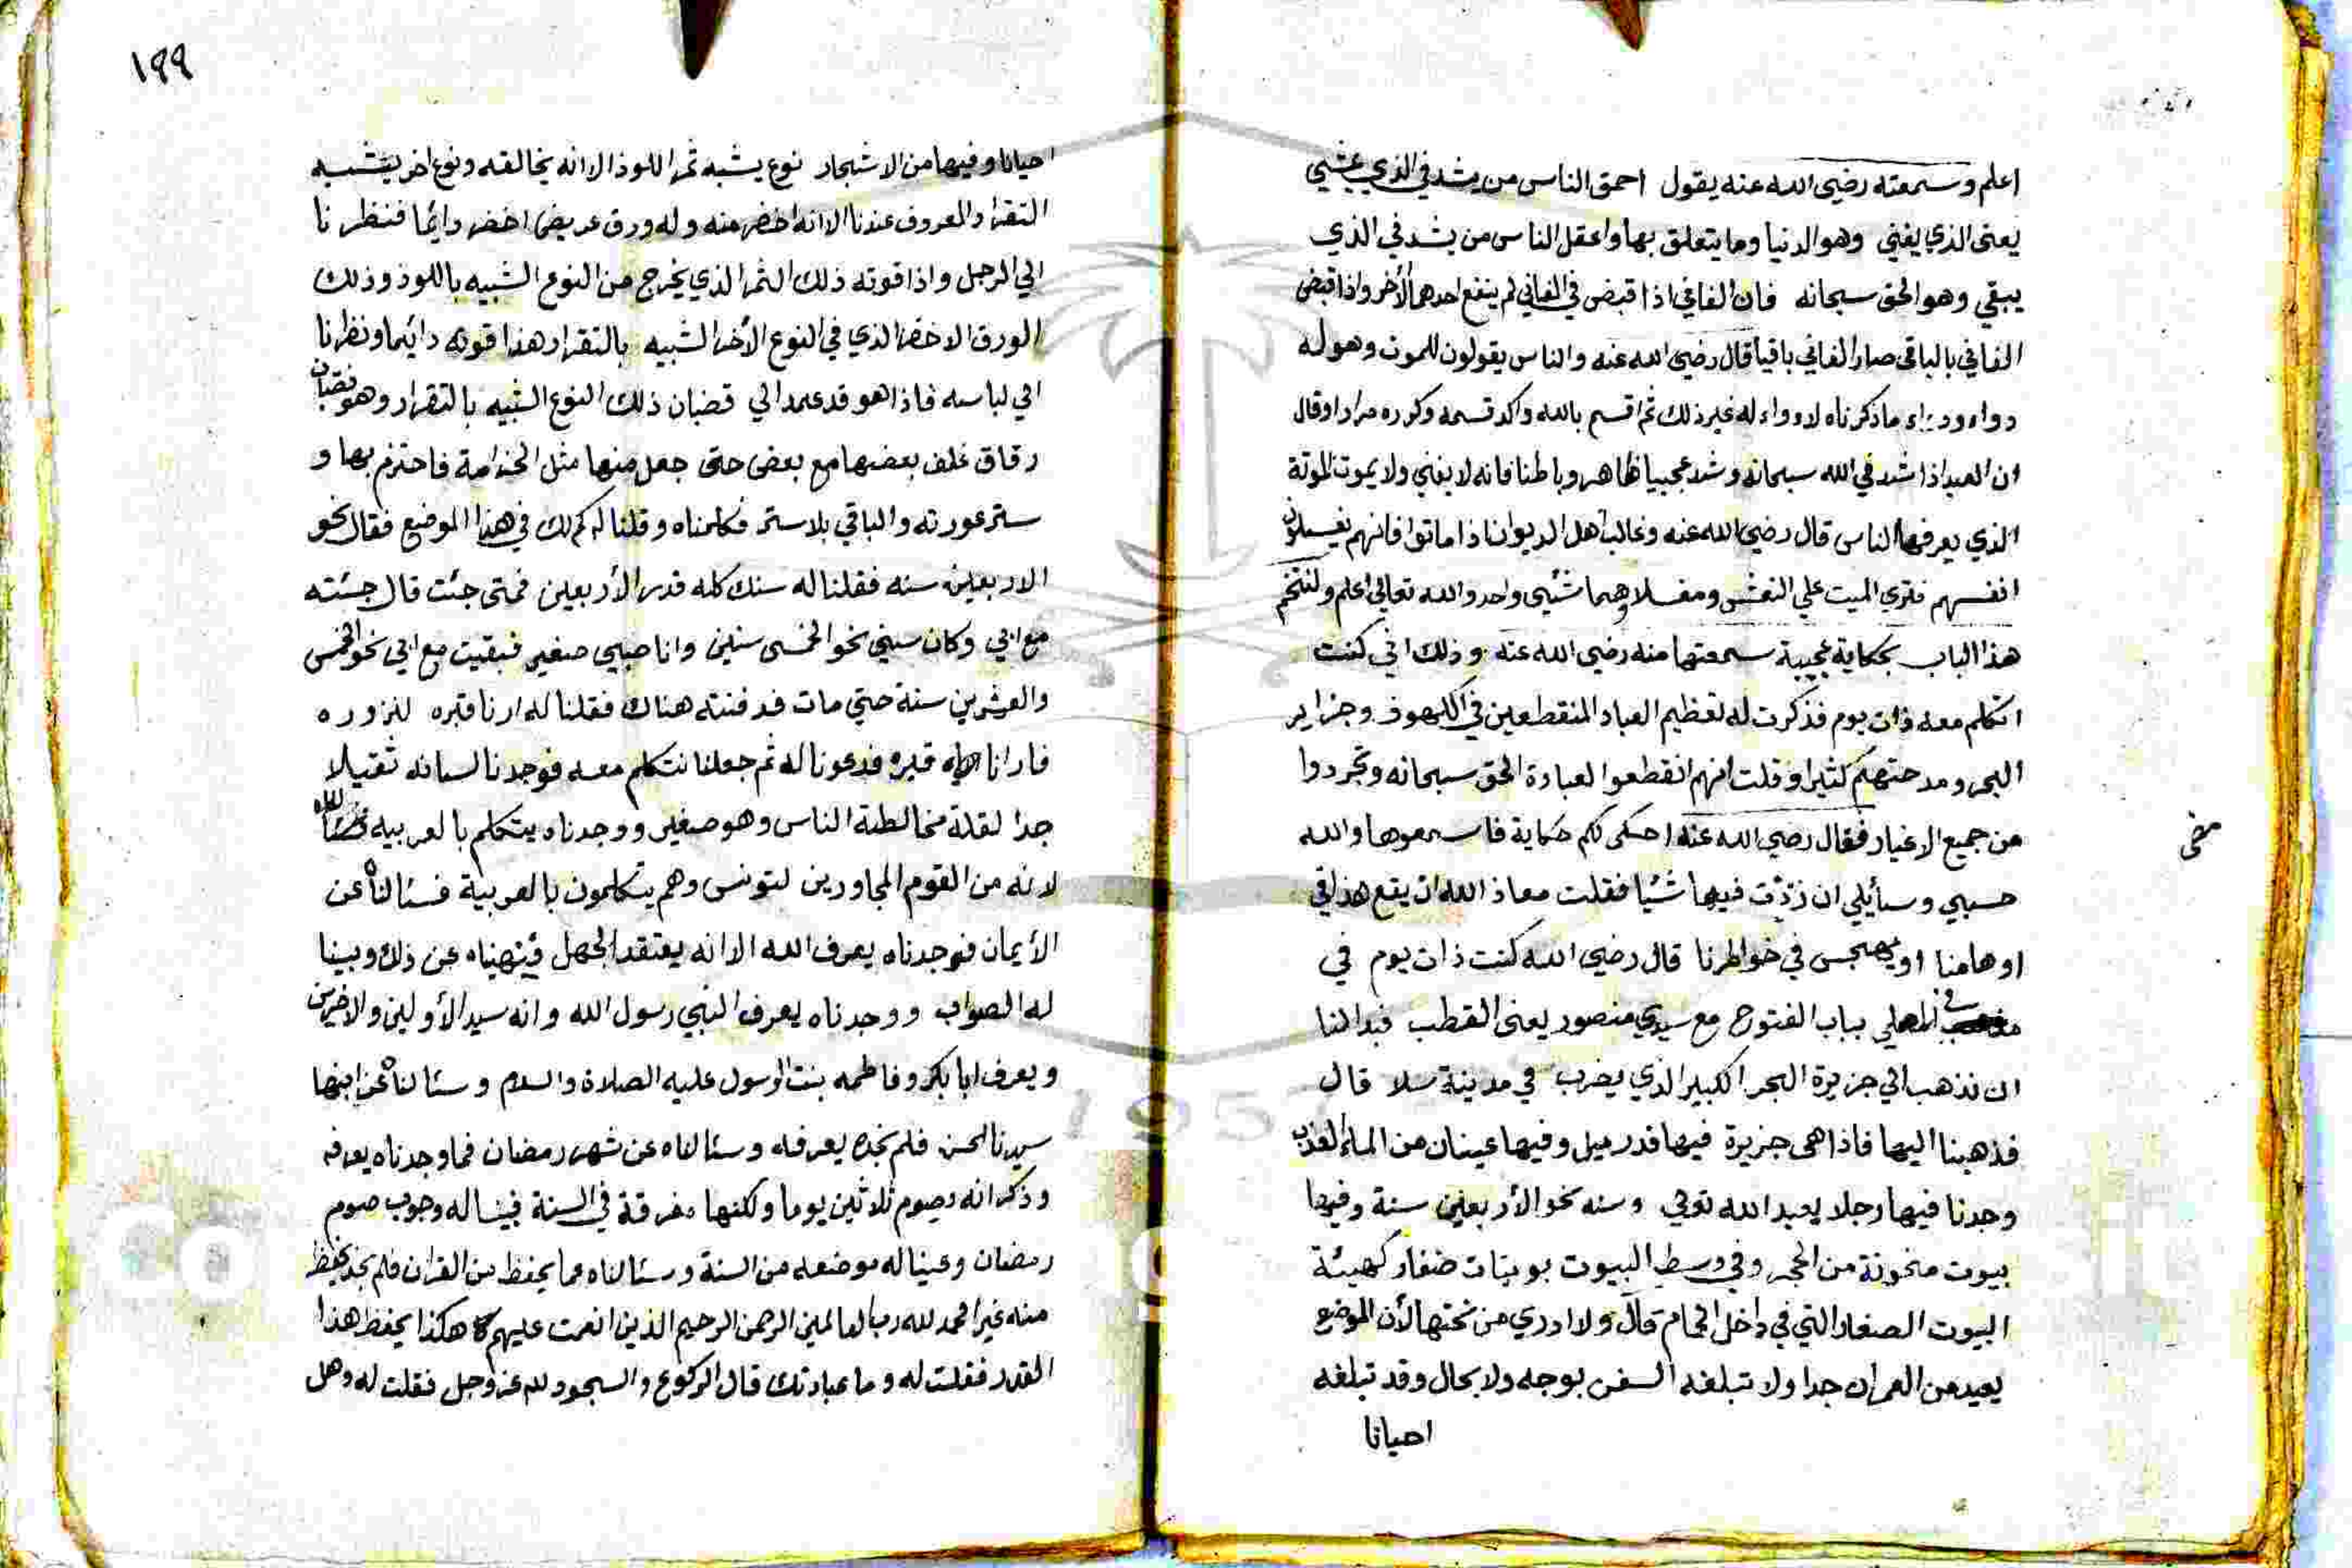 اعلم وسمعته رضي الله عنه يقول احمق الناس من يشد في الذي يمشي
يعنى الذي يفني وهو الدنيا وما يتعلق بها واعقل الناس من يشد في الذي
يبقي وهو الحق سبحانه فان الفاني اذا قبض في الفاني لم ينفع احدهما الأخر واذا قبض
الفاني بالباقي صار الفاني باقيا قال رضي الله عنه والناس يقولون للموت وهو له
دواء ودراء ماذكرناه لا دواء له غير ذلك ثم اقسم بالله واكد قسمه وكرره مرارا وقال
ان العبد اذا شد في الله سبحانه وشد عجيبا ظاهر وباطنا فانه لا يفني ولا يموت الموتة
الذي يعرفها الناس قال رضي الله عنه وغالب أهل الديوان اذا ماتوا فانهم يغسلون
انفسهم فتري الميت علي النعش ومغسلا وهما شئيى واحد والله تعالي اعلم ولنختم
هذا الباب بحكاية عجيبة سمعتها منه رضي الله عنه وذلك اني كنت
اتكلم معه ذات يوم فذكرت له تعظيم العباد المنقطعين في الكهوف وجزاير
البحر ومدحتهم كثيرا وقلت انهم انقطعوا لعبادة الحق سبحانه وتجردوا
من جميع الاغيار فقال رضي الله عنه احكى لكم حكاية فاسمعوها والله
حسبي وسائيلي ان زدت فيها شئيا فقلت معاذ الله ان يقع هذا في
اوهامنا او يهجس في خواطرنا قال رضي الله كنت ذات يوم في
في المصلي بباب الفتوح مع سيدي منصور يعنى القطب فبدا لنا
ان نذهب الي جزيرة البحر الكبير الذي يضرب في مدينة سلا قال
فذهبنا اليها فاذا هى جزيرة فيها قدر ميل وفيها عينان من الماء العذب
وجدنا فيها رجلا يعبد الله تعالي وسنه نحو الأربعين سنة وفيها
بيوت منحوتة من الحجر وفي وسط البيوت بويتات صغار كهيئة
البيوت الصغار التي في داخل الحمام قال ولا ادري من نحتها لأن الموضع
بعيد من العمران جدا ولا تبلغه السفن بوجه ولا بحال وقد تبلغه
احيانا
١٩٩
احيانا وفيها من الاشجار نوع يشبه ثمر اللوذ الا انه يخالفه ونوع اخر يشبه
التقرار المعروف عندنا الا انه اخضر منه وله ورق عريض اخضر دائما فنظرنا
الي الرجل واذا قوته ذلك الثمر الذي يخرج من النوع الشبيه باللوذ وذلك
الورق الاخضر الذي في النوع الأخر الشبيه بالتقرار هذا قوته دائيما ونظرنا
الي لباسه فاذا هو قد عمد الي قضبان ذلك النوع الشبيه بالتقرار وهو قضبان
رقاق غلف بعضها مع بعض حتى جعل منها مثل الحزامة فاحتزم بها و
ستر عورته والباقي بلا ستر فكلمناه وقلنا له كم لك في هذا الموضع فقال نحو
الاربعين سنه فقلنا له سنك كله قدر الأربعين فمتى جئت قال جئته
مع ابي وكان سيني نحو الخمس سنين وانا صبي صغير فبقيت مع ابي نحو الخمس
والعشرين سنة حتي مات فدفنته هناك فقلنا له ارنا قبره لنزوره
فارانا قبره فدعونا له ثم جعلنا نتكلم معه فوجدنا لسانه ثقيلا
جدا لقلة مخالطة الناس وهو صغير ووجدناه يتكلم بالعربيه
لانه من القوم المجاورين لتونس وهم يتكلمون بالعربية فسئالناه عن
الأيمان فوجدناه يعرف الله الا انه يعتقد الجهل فنهيناه عن ذلك وبينا
له الصواب ووجدناه يعرف النبي رسول الله وانه سيد الأولين والاخرين
ويعرف ابا بكر وفاطمه بنت الرسول عليه الصلاة والسلام وسئالناه عن ابنها
سيدنا الحسن فلم نجده يعرفه وسئالناه عن شهر رمضان فما وجدناه يعرفه
وذكر انه يصوم ثلاثين يوما ولكنها مفرقة في السنة فبينا له وجوب صوم
رمضان وعينا له موضعه من السنة وسئالناه عما يحفظ من القران فلم نجد يحفظ
منه غير الحمد لله رب العالمين الرحمن الرحيم الذين انعمت عليهم هكذا يحفظ هذا
القدر فقلت له وما عبادتك قال الركوع والسجود لله عز وجل فقلت له وهل